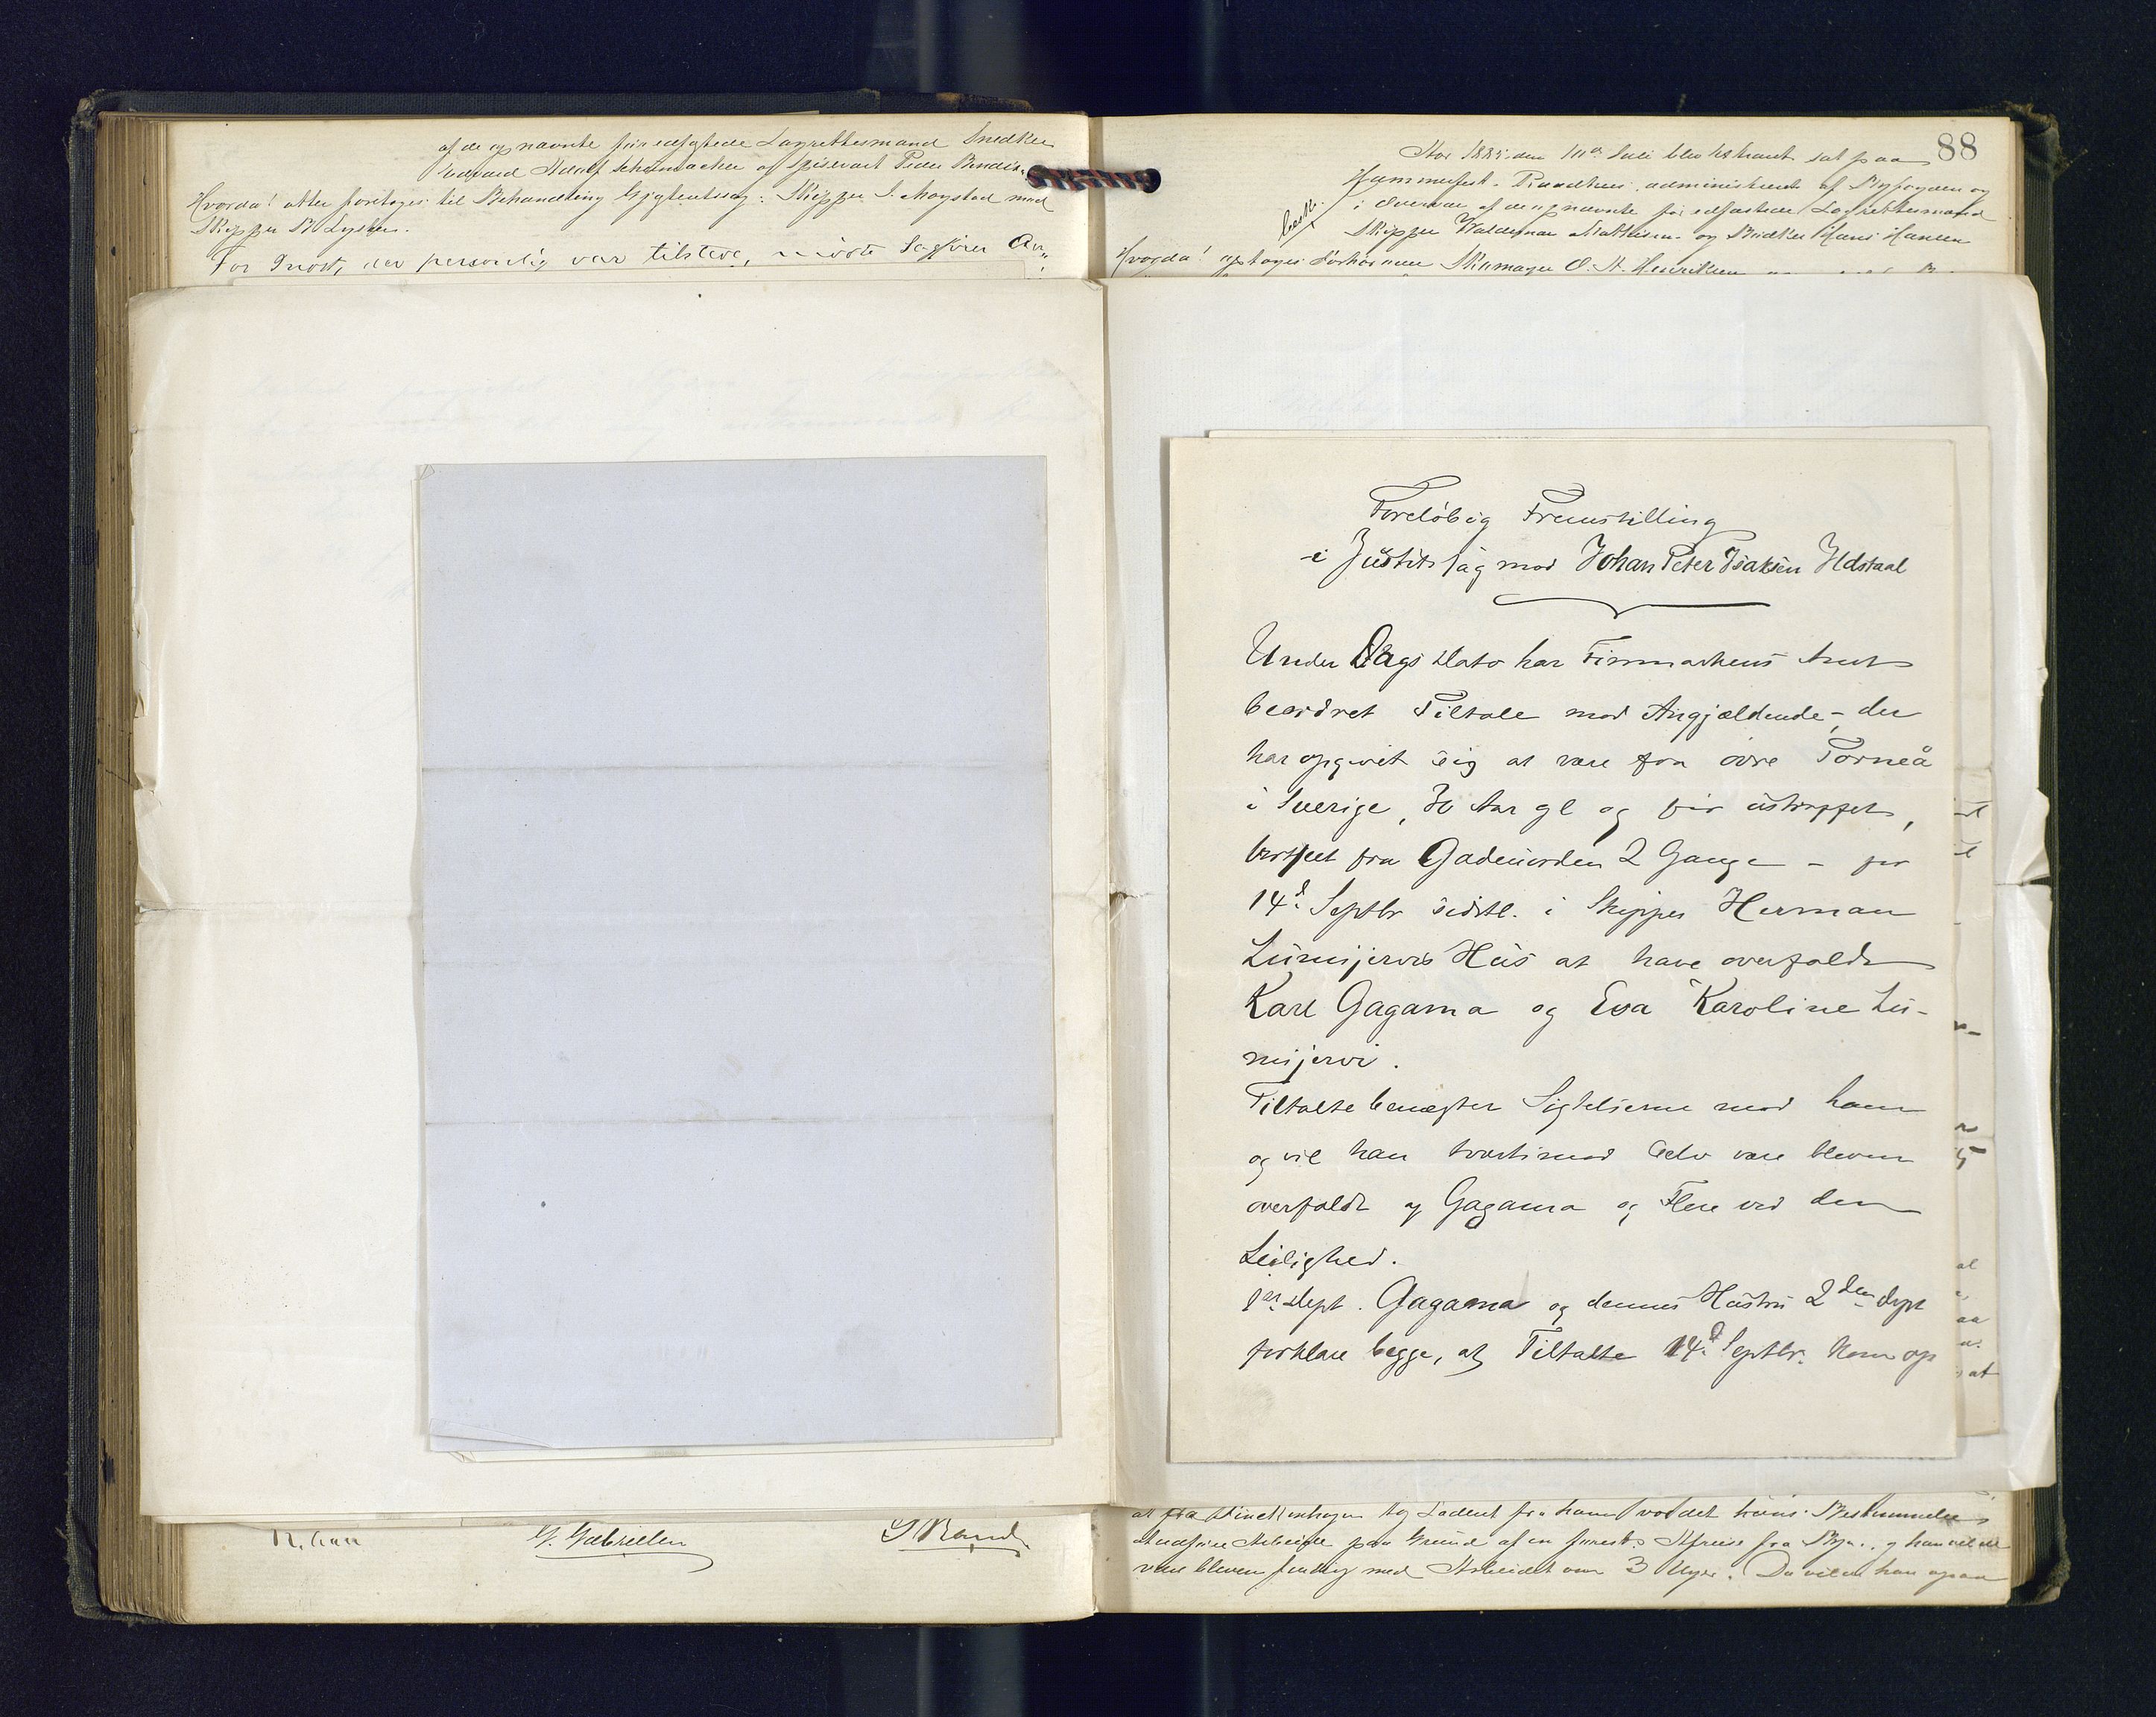 af de opnævnte før edfæstede Lagrettesmænd Snedker
Edvard Adolf Schumacker og Spisevært Peder Bendix-
Hvorda! atter foretoges til Behandling Gjæstretssag: Skipper S. Mogstad mod
Skipper B. Lysken.
For Indst, der personlig var tilstede, mødte Sagfører An-
N. Han
G. Gabrielsen
S Rand
88
Aar 1885 den 10de Juli blev Extraret sat paa
Hammerfest Raadhus administreret af Byfogden og
i Overvær af de opnævnte før edfæstede Lagrettesmænd
Skipper Waldemar Mathisen og Bødker Hans Hansen
Hvorda! optoges Skomager O. A. Henriksen
Foreløbig Fremstilling
i Justitssag mod Johan Peter Isaksen Ildstaal
Under Dags Dato har Finmarkens Amt
beordret Tiltale mod Angjældende, der
har opgivet sig at være fra øvre Torneå
i Sverige, 30 Aar gl og før ustraffet,
bortseet fra Gadeuorden 2 Gange – for
14d Septbr sidstl. i Skipper Herman
Lumijervis Hus at have overfaldt
Karl Gagama og Eva Karoline Lu-
mijervi.
Tiltalte benægter Sigtelserne mod ham
og vil han tvertimod selv være bleven
overfaldt af Gagama og Flere ved den
Leilighed.
1ste Dept. Gagama og dennes Hustru 2den Dept
forklare begge, at Tiltalte 14d Septbr. kom op
at fra Finckenhagen og Ladent fra ham var det hans Bestemmelse
Arbeide paa Grund af en forest. Afreise fra Byen, og han vilde
være bleven færdig med Arbeidet om 3 Uger. Da vilde han ogsaa